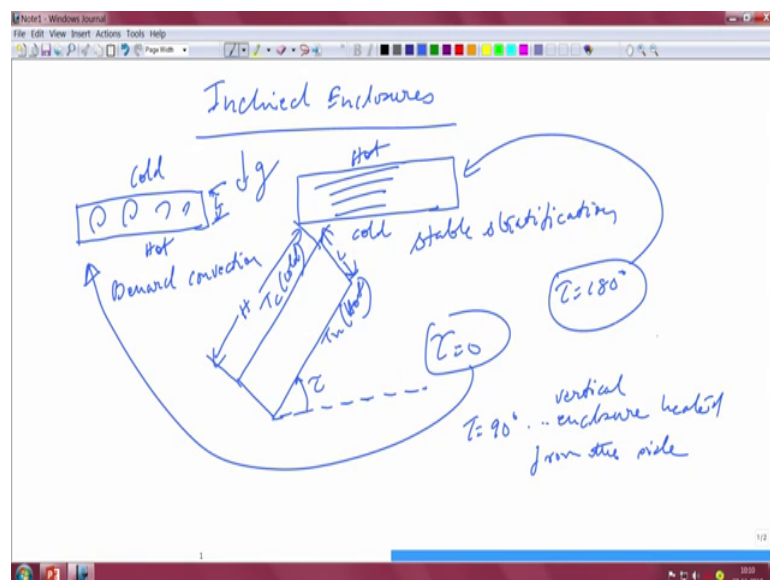 Note1 - Windows Journal
File Edit View Insert Actions Tools Help
Page Width
Inclined Enclosures
Cold
↓g
Hot
Hot
Benard convection
cold
stable stratification
H
Tc (cold)
L
TH (Hot)
τ
τ=0
τ=180°
τ=90° .. vertical
enclosure heated
from the side
1
1/2
10:10